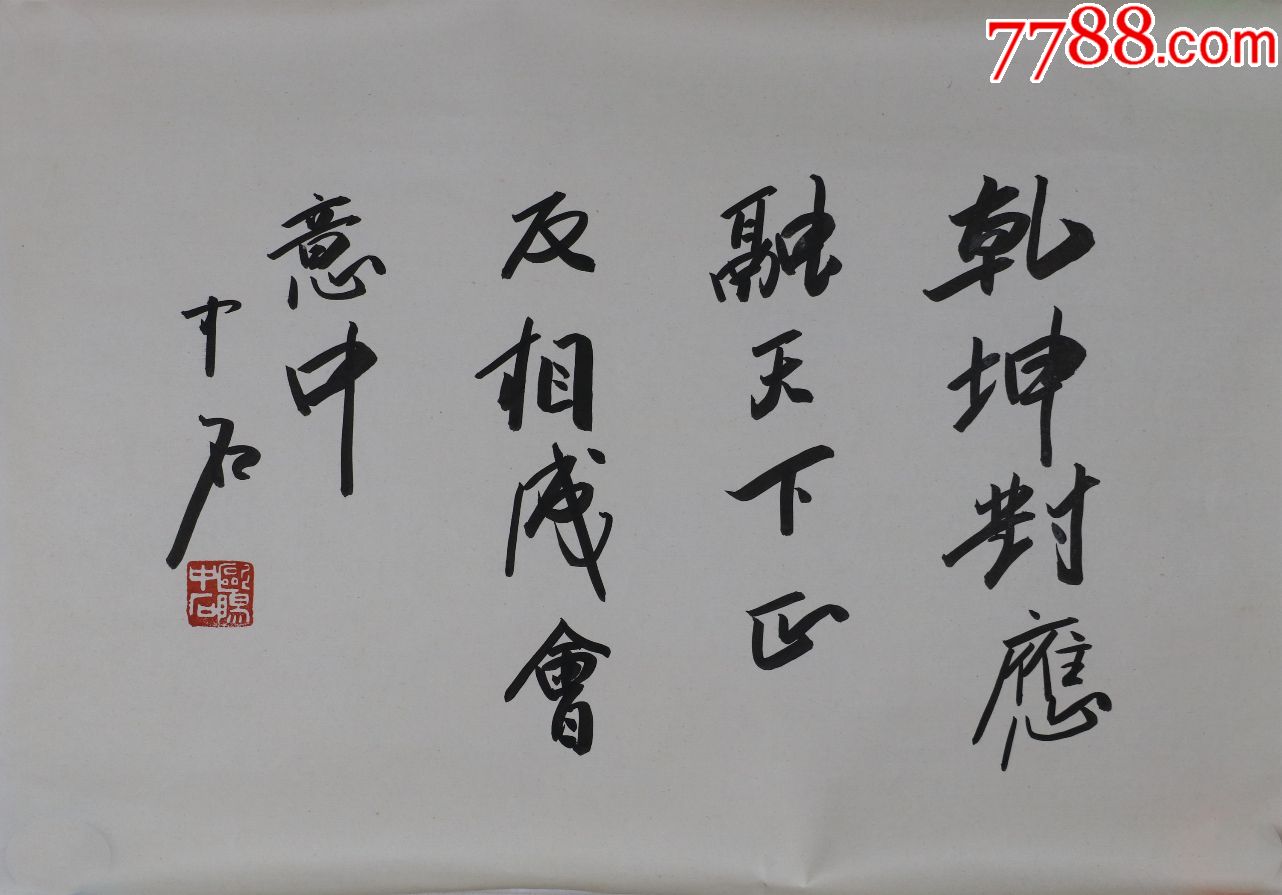 7788.com
乾坤對應
融天下正
反相成會
意中
中石
歐陽
中石